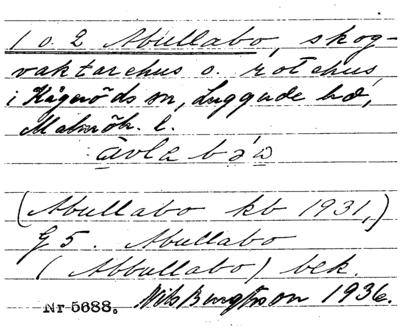 1 o. 2 Abullabo, skog-
vaktarehus o. rotehus
i Kågeröds sn, Luggude hd,
Malmöh. l.
avla bo
(Abullabo kb 1931,)
G 5. Abullabo
(Abbullabo) bek.
Nr 5688. Nils Bengtsson 1936.